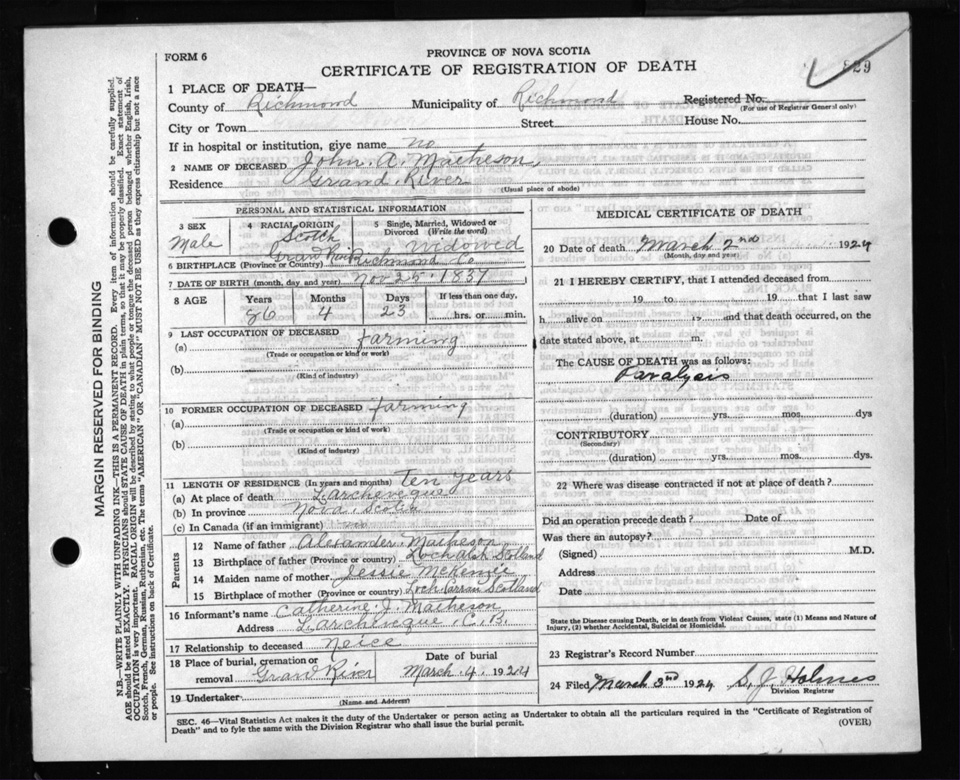 FORM 6
PROVINCE OF NOVA SCOTIA
CERTIFICATE OF REGISTRATION OF DEATH
829
1 PLACE OF DEATH—
County of Richmond Municipality of Richmond Registered No.
(For use of Registrar General only)
City or Town Street House No.
If in hospital or institution, give name no
2 NAME OF DECEASED John. A. Matheson,
Residence Grand River
(Usual place of abode)
PERSONAL AND STATISTICAL INFORMATION
3 SEX 4 RACIAL ORIGIN 5 Single, Married, Widowed or Divorced (Write the word)
Male Scotch Widowed
6 BIRTHPLACE (Province or Country) Richmond Co
7 DATE OF BIRTH (month, day, and year) Nov 25. 1837
8 AGE Years Months Days If less than one day,
86 4 23 hrs. or min.
9 LAST OCCUPATION OF DECEASED
(a) farming
(Trade or occupation or kind or work)
(b)
(Kind of industry)
10 FORMER OCCUPATION OF DECEASED farming
(a)
(Trade or occupation or kind of work)
(b)
(Kind of industry)
11 LENGTH OF RESIDENCE (In years and months) Ten years
(a) At place of death L'archeveque
(b) In province Nova Scotia
(c) In Canada (if an immigrant)
Parents
12 Name of father Alexander Matheson
13 Birthplace of father (Province or country) Loch alsh Scotland
14 Maiden name of mother Jessie McKenzie
15 Birthplace of mother (Province or country) Loch Carran Scotland
16 Informant's name Catherine. J. Matheson
Address L'archeveque, C. B.
17 Relationship to deceased Neice
18 Place of burial, cremation or removal Grand River Date of burial March. 4. 1924
19 Undertaker
(Name and Address)
MEDICAL CERTIFICATE OF DEATH
20 Date of death March 2nd 1924
(Month, day and year)
21 I HEREBY CERTIFY, that I attended deceased from
19 to 19 that I last saw
h alive on 19 and that death occurred, on the
date stated above, at m.
The CAUSE OF DEATH was as follows:
Paralysis
(duration) yrs. mos. dys
CONTRIBUTORY
(Secondary)
(duration) yrs. mos. dys.
22 Where was disease contracted if not at place of death?
Did an operation precede death? Date of
Was there an autopsy?
(Signed) M.D.
Address
Date
State the Disease causing Death, or in death from Violent Causes, state (1) Means and Nature of
Injury, (2) whether Accidental, Suicidal or Homicidal.
23 Registrar's Record Number
24 Filed March 3rd 1924 S. J. Holmes
Division Registrar
SEC. 46—Vital Statistics Act makes it the duty of the Undertaker or person acting as Undertaker to obtain all the particulars required in the "Certificate of Registration of
Death" and to fyle the same with the Division Registrar who shall issue the burial permit. (OVER)
MARGIN RESERVED FOR BINDING
N.B.—WRITE PLAINLY WITH UNFADING INK—THIS IS A PERMANENT RECORD. Every item of information should be carefully supplied.
AGE should be stated EXACTLY. PHYSICIANS should STATE CAUSE OF DEATH in plain terms, so that it may be properly classified. Exact statement of
OCCUPATION is very important. RACIAL ORIGIN will be described by stating to what people or tongue the deceased person belonged whether English, Irish,
Scotch, French, German, Russian, Ruthenian, etc. The terms "AMERICAN" OR "CANADIAN" MUST NOT BE USED as they express citizenship but not a race
or people. See instructions on back of Certificate.